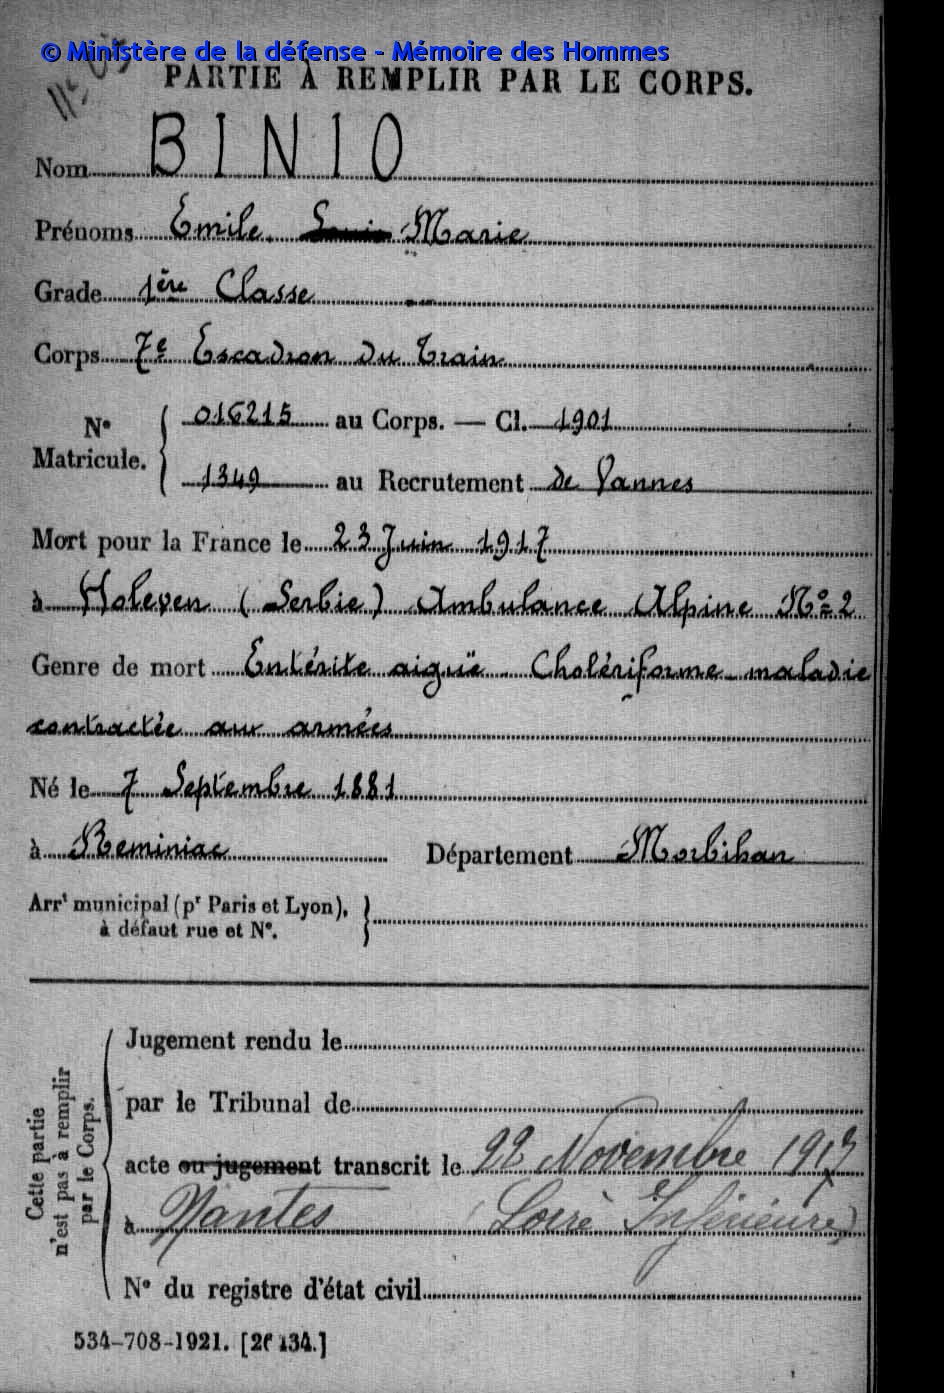 © Ministère de la défense - Mémoire des Hommes
PARTIE À REMPLIR PAR LE CORPS.
Nom BINIO
Prénoms Emile Louis Marie
Grade 1ère Classe
Corps 7e Escadron du Train
N° Matricule. { 016215 au Corps. — Cl. 1901
1349 au Recrutement de Vannes
Mort pour la France le 23 Juin 1917
à Holeven (Serbie) Ambulance Alpine N° 2
Genre de mort Entérite aiguë Cholériforme maladie
contractée aux armées
Né le 7 Septembre 1881
à Reminiac Département Morbihan
Arrt municipal (pr Paris et Lyon), }
à défaut rue et N°.
Cette partie n'est pas à remplir par le Corps.
Jugement rendu le
par le Tribunal de
acte ou jugement transcrit le 22 Novembre 1917
à Nantes (Loire Inférieure)
N° du registre d'état civil
534-708-1921. [26434.]